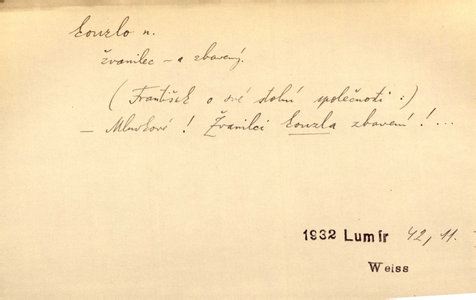 kouzlo n.
žvanilec – a zbavený.
(František o své stolní společnosti:)
– Mluvkové! Žvanilci kouzla zbavení!...
1932 Lumír 42, 11.
Weiss